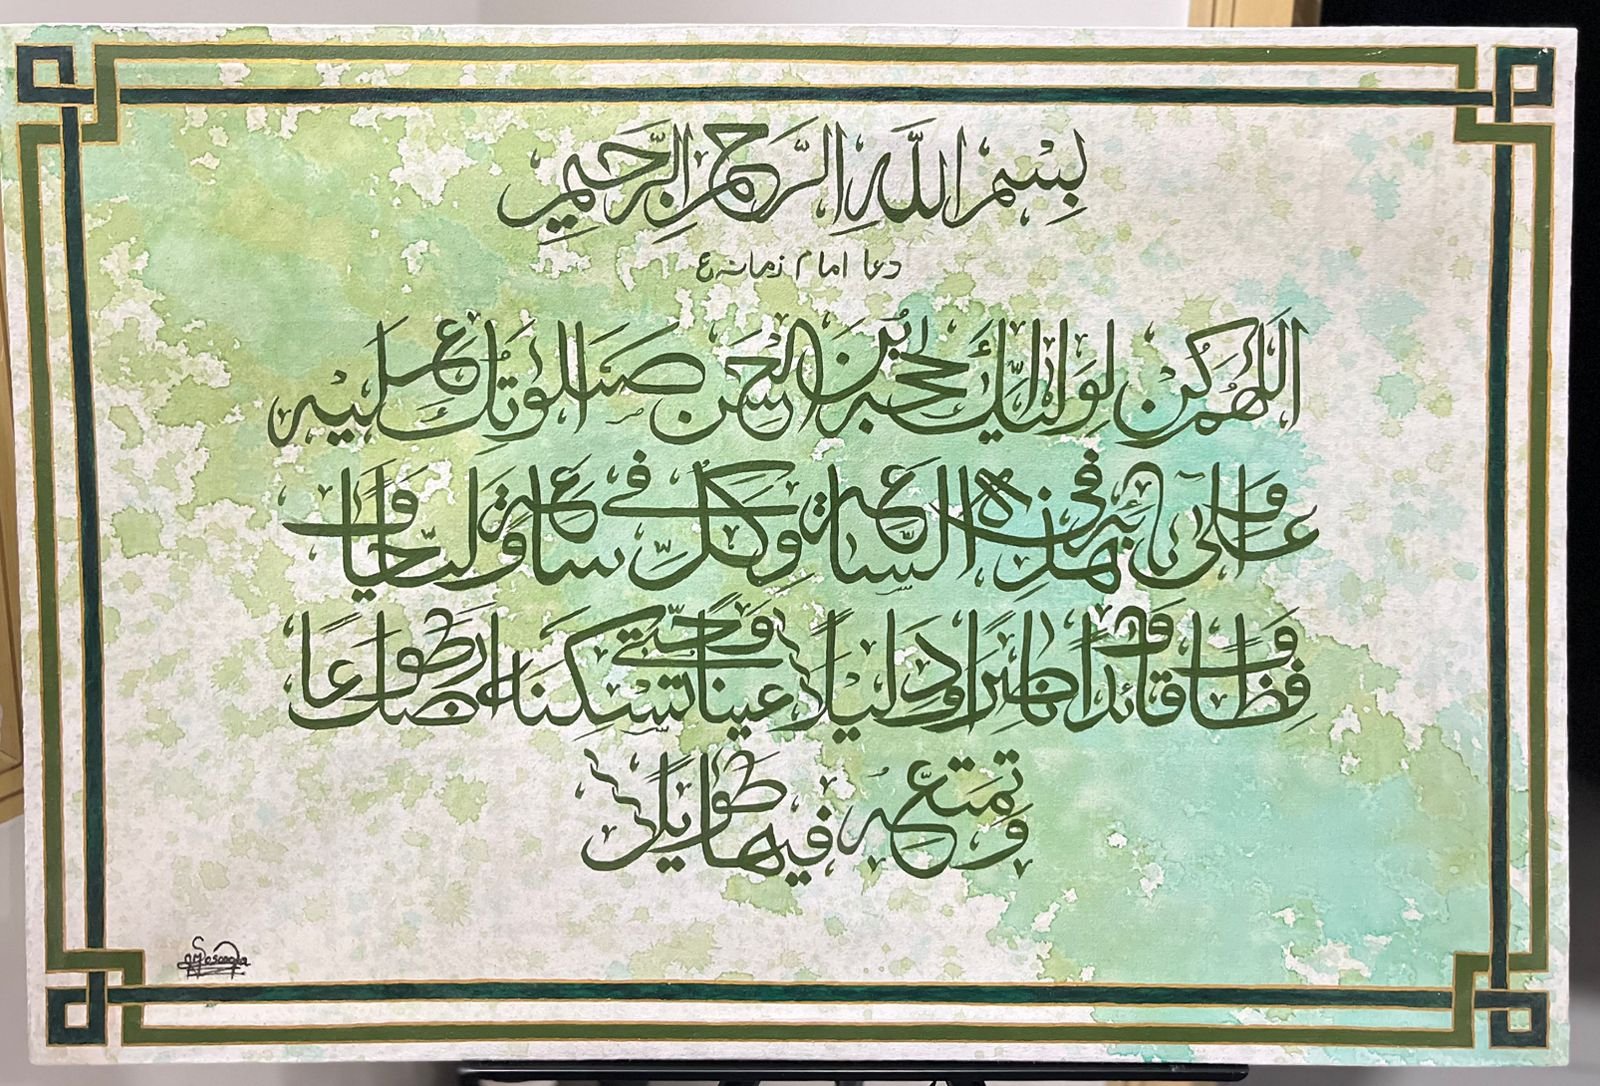 بِسْمِ اللَّهِ الرَّحْمَنِ الرَّحِيمِ
دعا امام زمان ع
اَللَّهُمَّ كُنْ لِوَلِيِّكَ الْحُجَّةِ بْنِ الْحَسَنِ صَلَوَاتُكَ عَلَيْهِ
وَعَلَى آبَائِهِ فِي هَذِهِ السَّاعَةِ وَفِي كُلِّ سَاعَةٍ وَلِيًّا وَحَافِظًا
وَقَائِدًا وَنَاصِرًا وَدَلِيلًا وَعَيْنًا حَتَّى تُسْكِنَهُ أَرْضَكَ طَوْعًا
وَتُمَتِّعَهُ فِيهَا طَوِيلًا